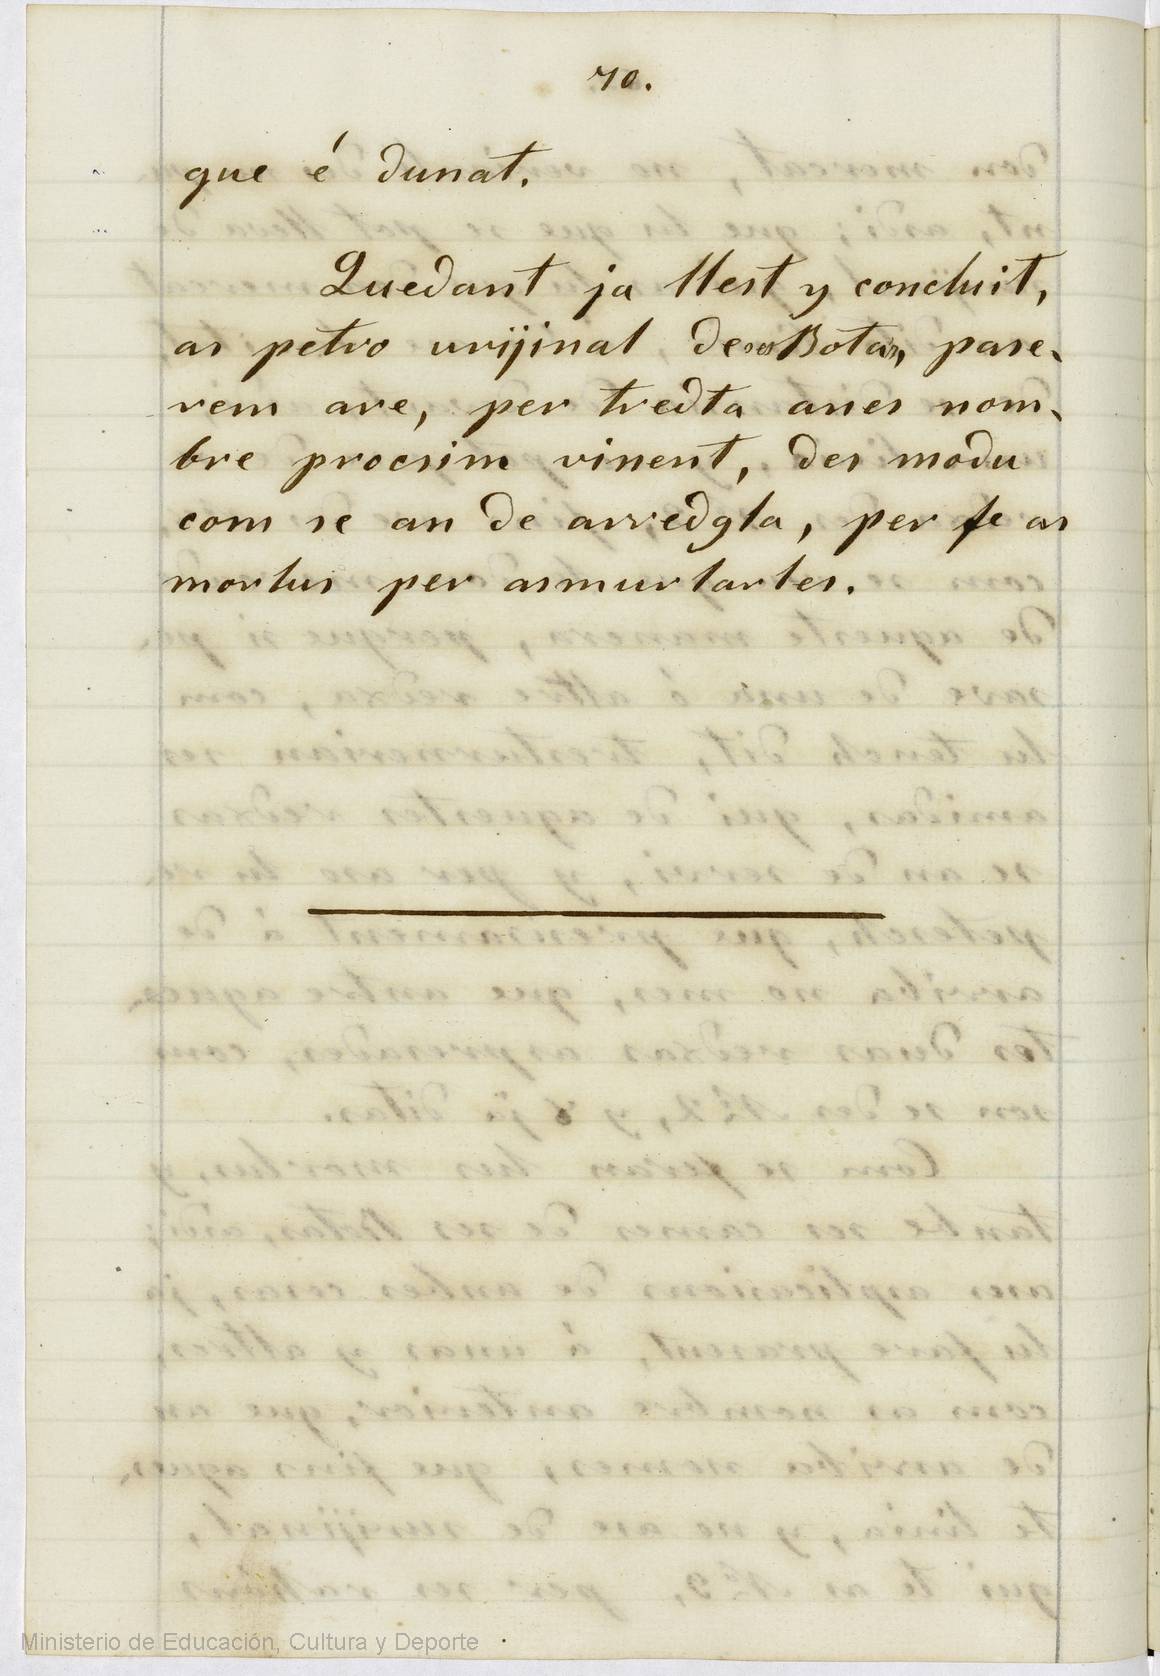 70.
que é dunat.
Quedant ja llest y concluit,
as petro urijinal de ses Botas, pase-
rem are, per tredta anes nom-
bre procsim vinent, des modu
com se an de arredgla, per fe as
morlus per asmurlarles.
Ministerio de Educación, Cultura y Deporte